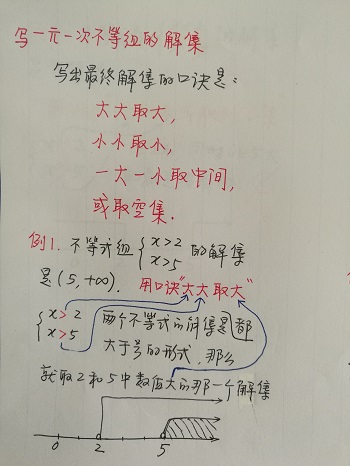 写一元一次不等组的解集
写出最终解集的口诀是:
大大取大,
小小取小,
一大一小取中间,
或取空集.
例1. 不等式组{x>2 x>5 的解集
是(5,+∞). 用口诀"大大取大"
{x>2 x>5 两个不等式的解集是都
大于号的形式,那么
就取2和5中数值大的那一个解集
0 2 5